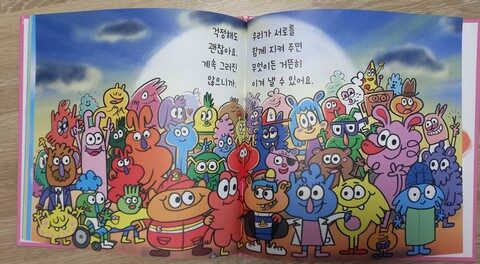 걱정해도
괜찮아요.
계속 그러진
않으니까.
우리가 서로를
함께 지켜 주면
무엇이든 거뜬히
이겨 낼 수 있어요.